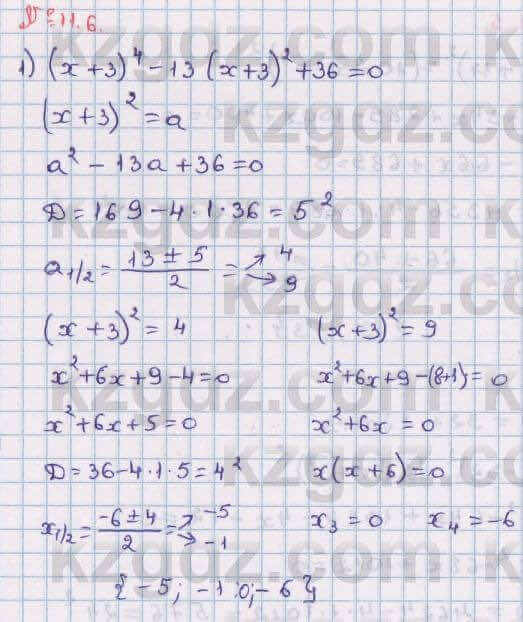 № 11.6.
1) (x+3)⁴ – 13 (x+3)² + 36 = 0
(x+3)² = a
a² – 13a + 36 = 0
D = 169 – 4·1·36 = 5²
a₁/₂ = (13 ± 5)/2 = ↗ 4 ↘ 9
(x+3)² = 4
x² + 6x + 9 – 4 = 0
x² + 6x + 5 = 0
D = 36 – 4·1·5 = 4²
x₁/₂ = (–6 ± 4)/2 = ↗ –5 ↘ –1
(x+3)² = 9
x² + 6x + 9 – (8+1) = 0
x² + 6x = 0
x(x+6) = 0
x₃ = 0 x₄ = –6
{–5; –1; 0; –6}
kzgdz.com